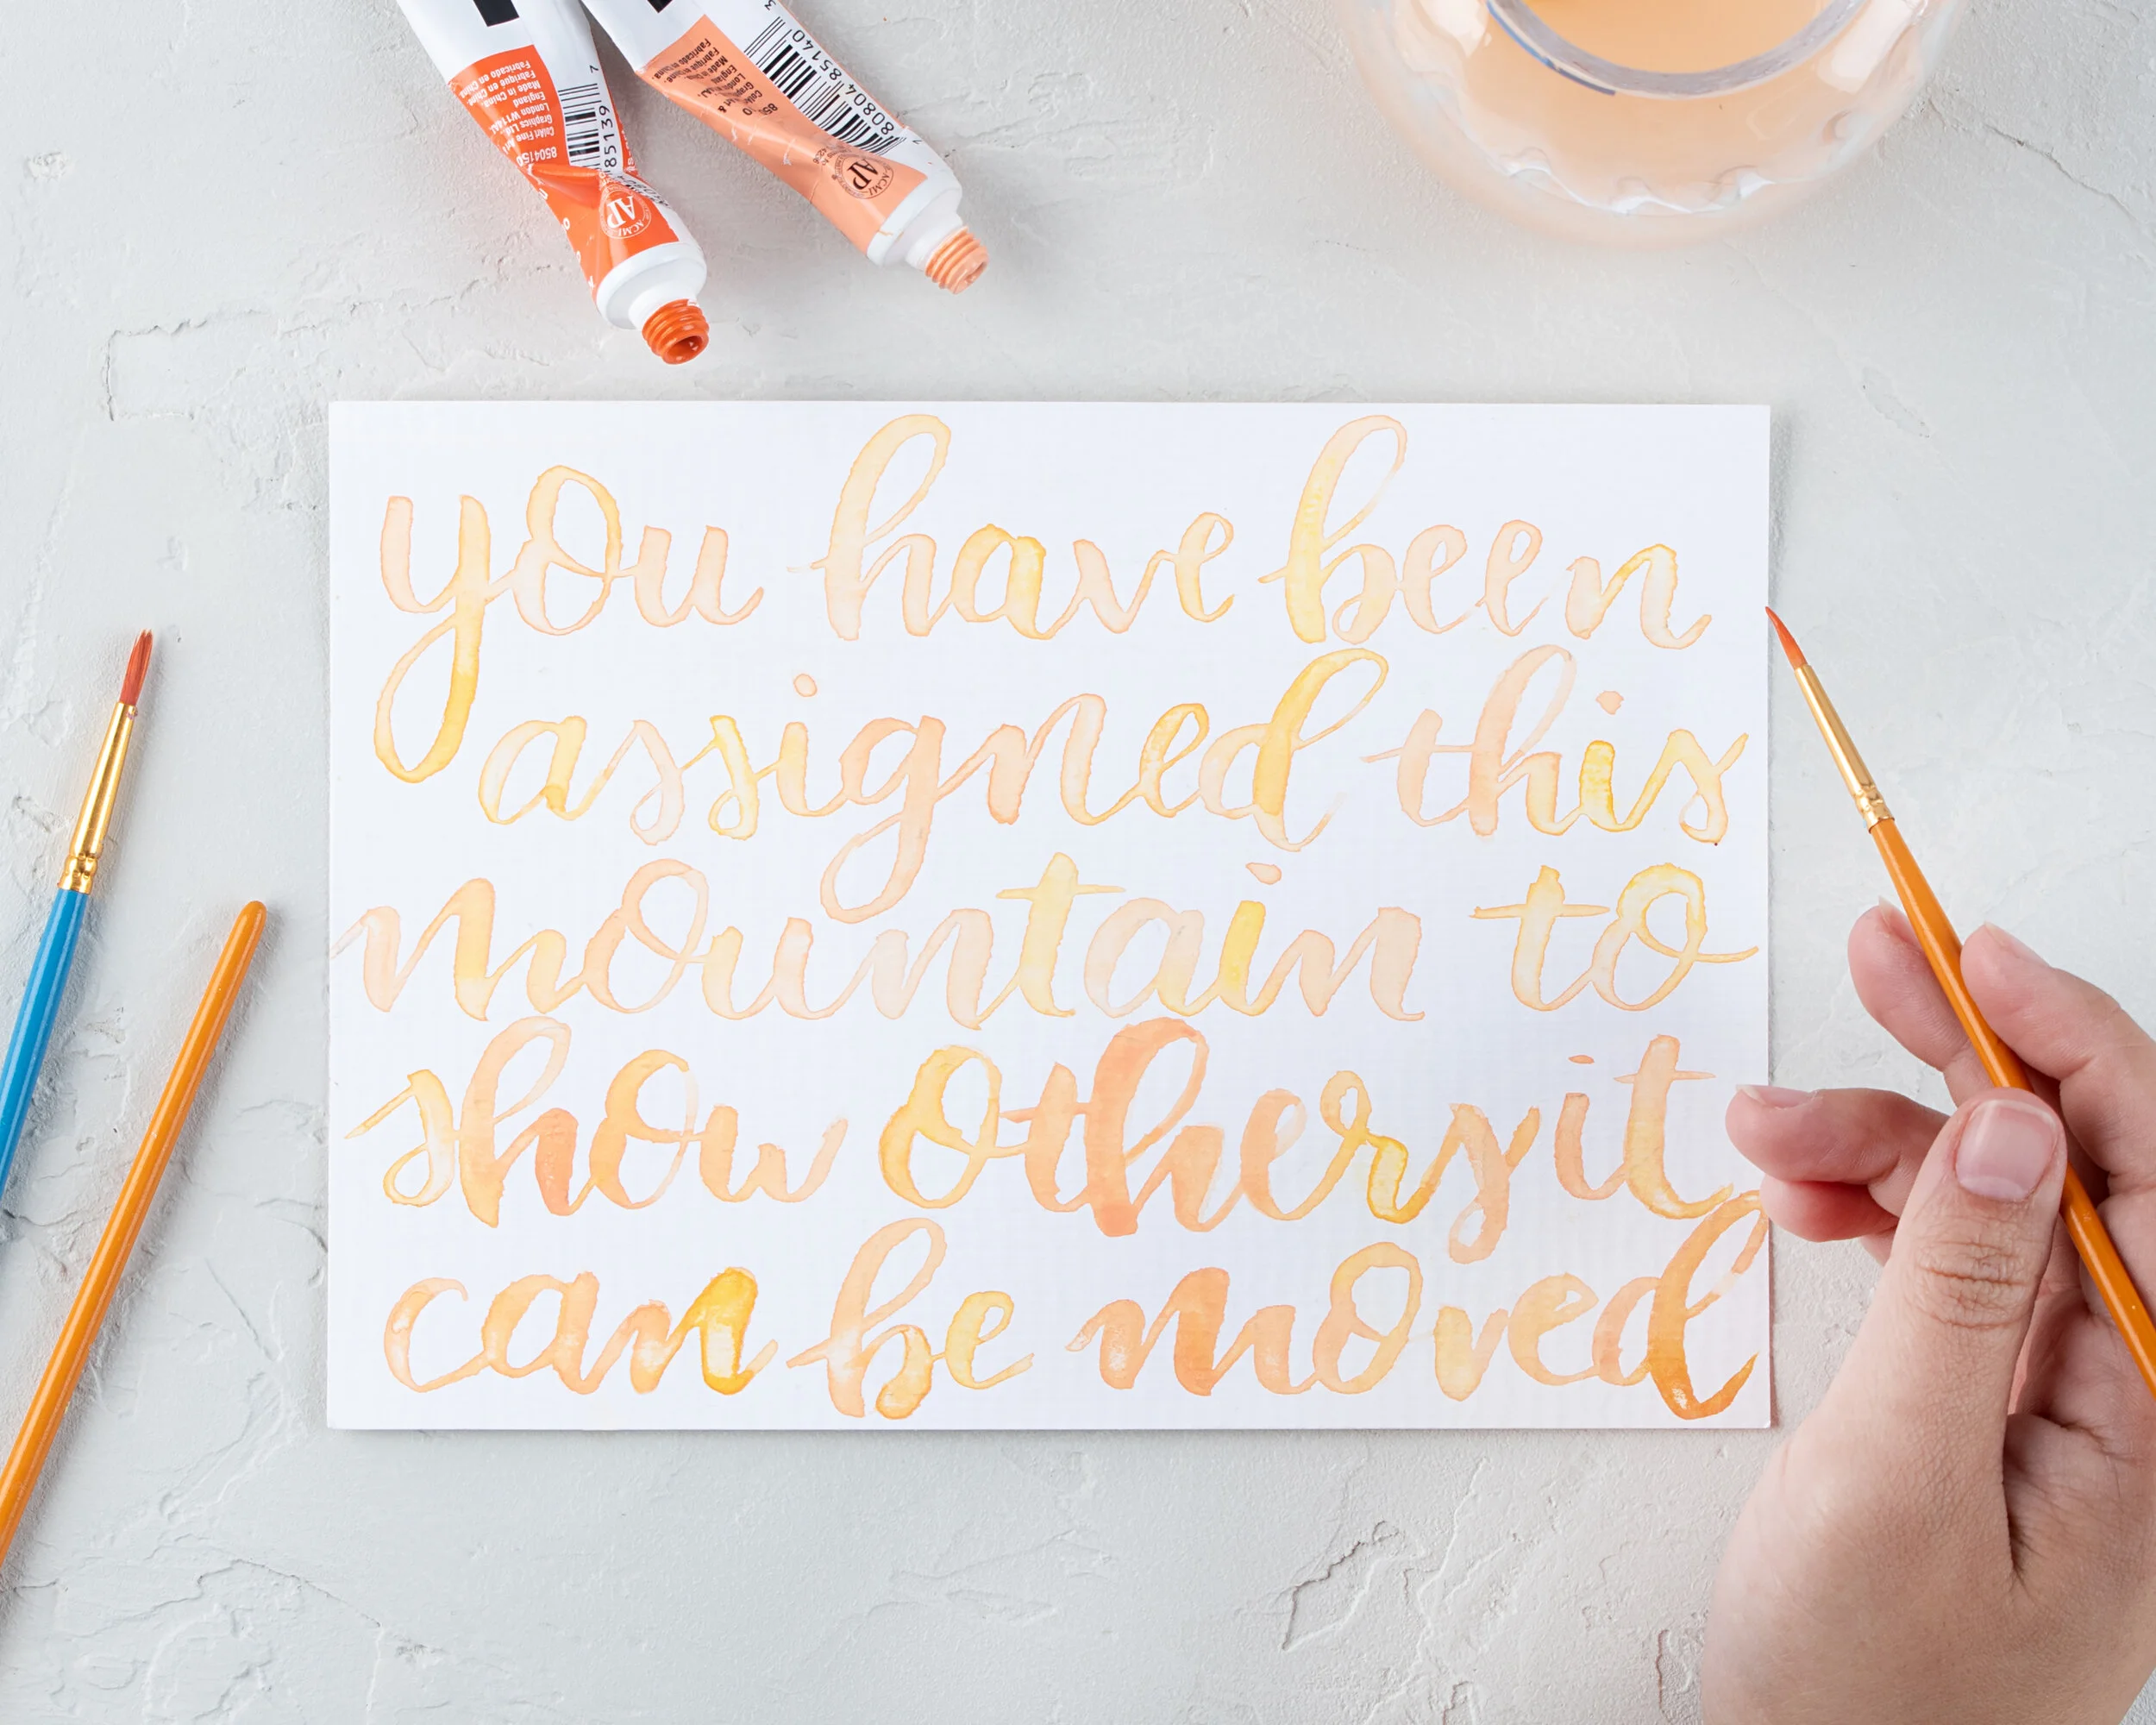 you have been
assigned this
mountain to
show others it
can be moved
8504150
ColArt Fine Art
Graphics Ltd.
London W11 4AJ
England
Made in China
Fabriqué en Chine
Fabricado en
85139 7
AP
ACMI
80804 85140
7
AP
ACMI